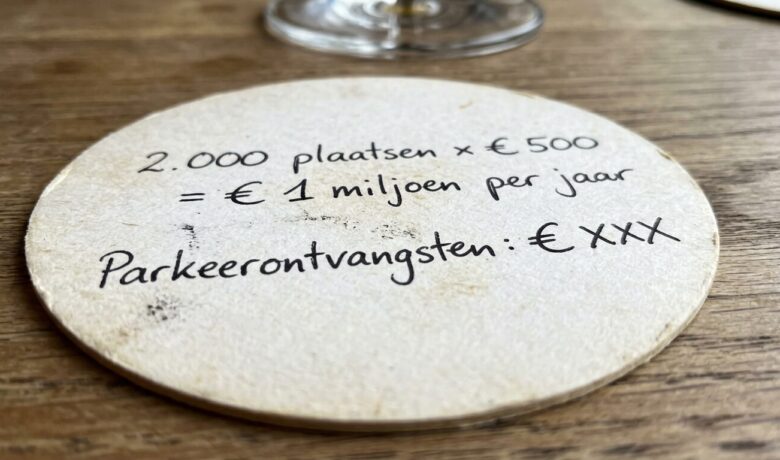 2.000 plaatsen × € 500
= € 1 miljoen per jaar
Parkeerontvangsten: € xxx